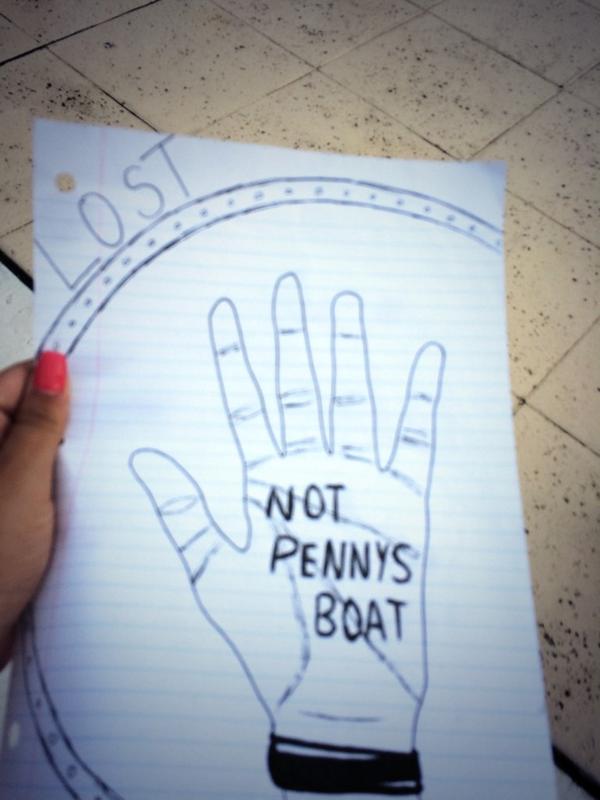 LOST
NOT
PENNYS
BOAT